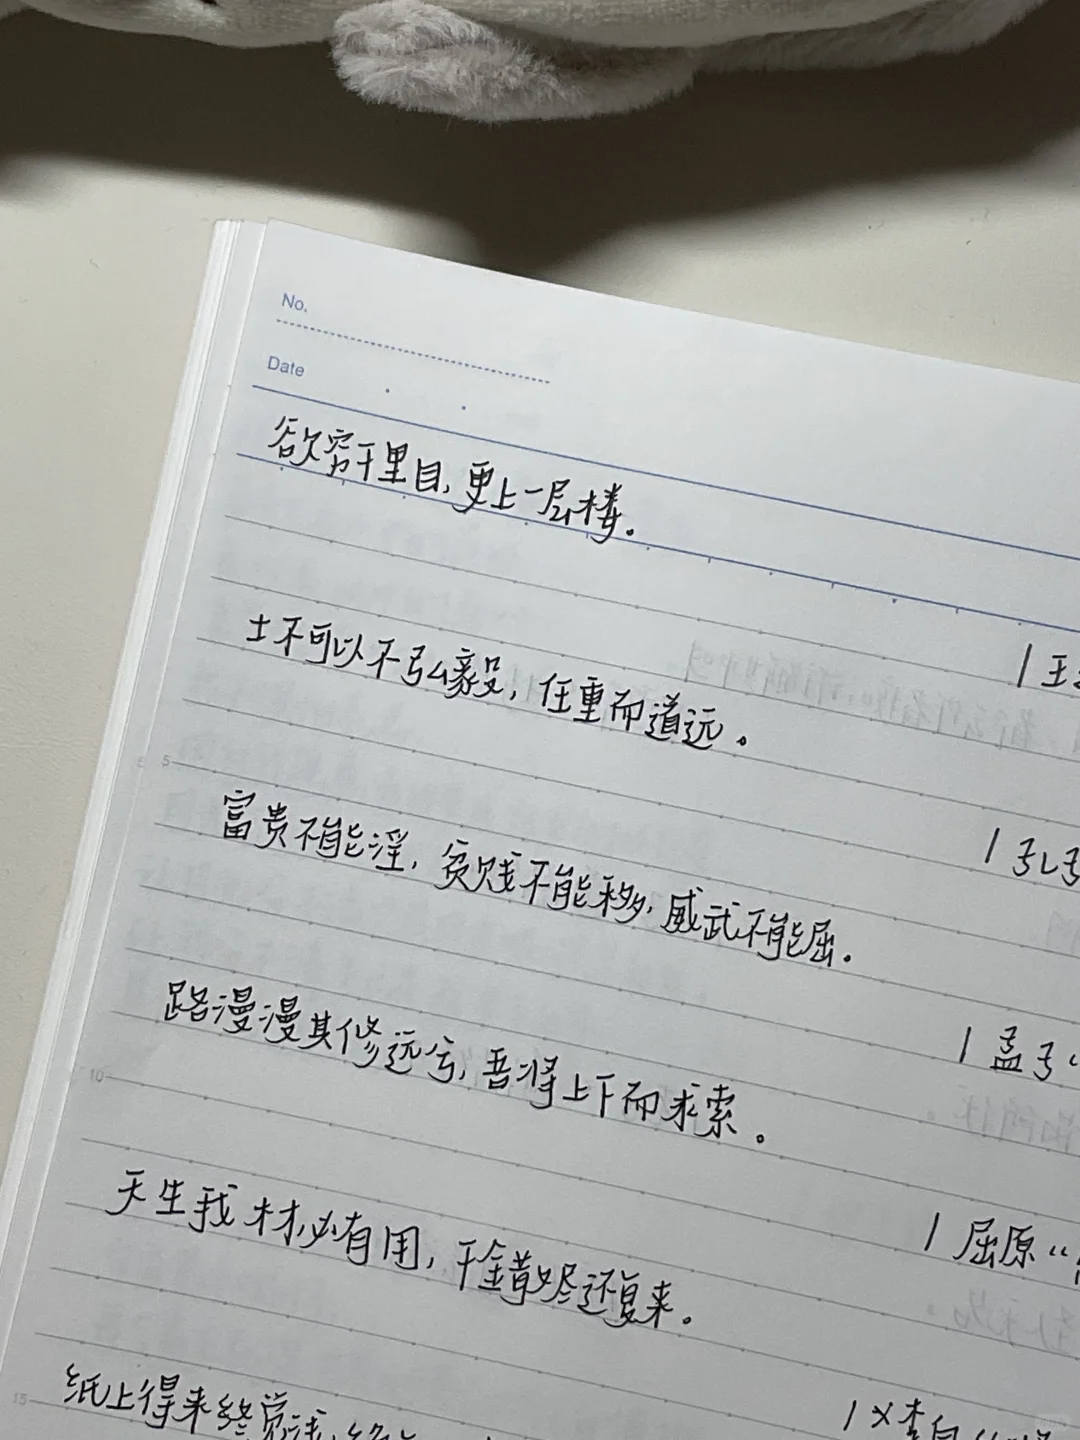 No.
Date
欲穷千里目,更上一层楼.
| 王
士不可以不弘毅,任重而道远。
5
| 孔子
富贵不能淫,贫贱不能移,威武不能屈.
| 孟子“
路漫漫其修远兮,吾将上下而求索。
10
| 屈原“
天生我材必有用,千金散尽还复来。
| 李白
15
纸上得来终觉浅,